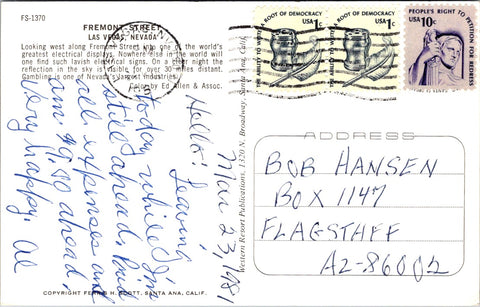 FS-1370
FREMONT STREET
LAS VEGAS, NEVADA
Looking west along Fremont Street and one of the world's
greatest electrical displays. Nowhere in the world will
one find such lavish electrical signs. On a clear night the
reflection in the sky is visible for over 30 miles distant.
Gambling is one of Nevada's largest industries.
Color by Ed Allen & Assoc.
Mar 23, 1981
Hello! Leaving
today while I'm
still ahead. Paid
all expenses and
am $9.50 ahead.
Very happy. Al
COPYRIGHT FERRIS H. SCOTT, SANTA ANA, CALIF.
Western Resort Publications, 1320 N. Broadway, Santa Ana, Calif.
THE ABILITY TO WRITE. A ROOT OF DEMOCRACY
USA 1c
THE ABILITY TO WRITE. A ROOT OF DEMOCRACY
USA 1c
PEOPLE'S RIGHT TO PETITION FOR REDRESS
USA 10c
ADDRESS
BOB HANSEN
BOX 1147
FLAGSTAFF
AZ-86002